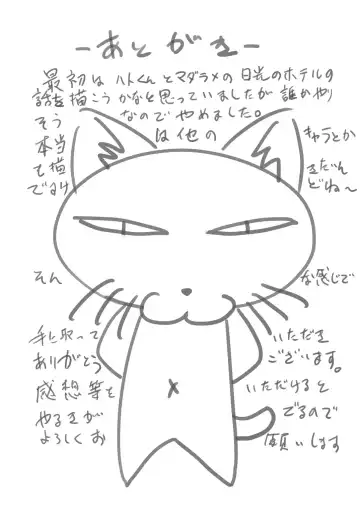 -あとがき-
最初は ハトくんとマダラメの日光のホテルの
話を描こうかなと思っていましたが誰かやり
そう なのでやめました。
本当 は他の キャラとか
も描 きたいん
ですけ どね〜
そん な感じで
手に取って いただき
ありがとう ございます。
感想等を いただけると
やるきが でるので
よろしくお 願いします